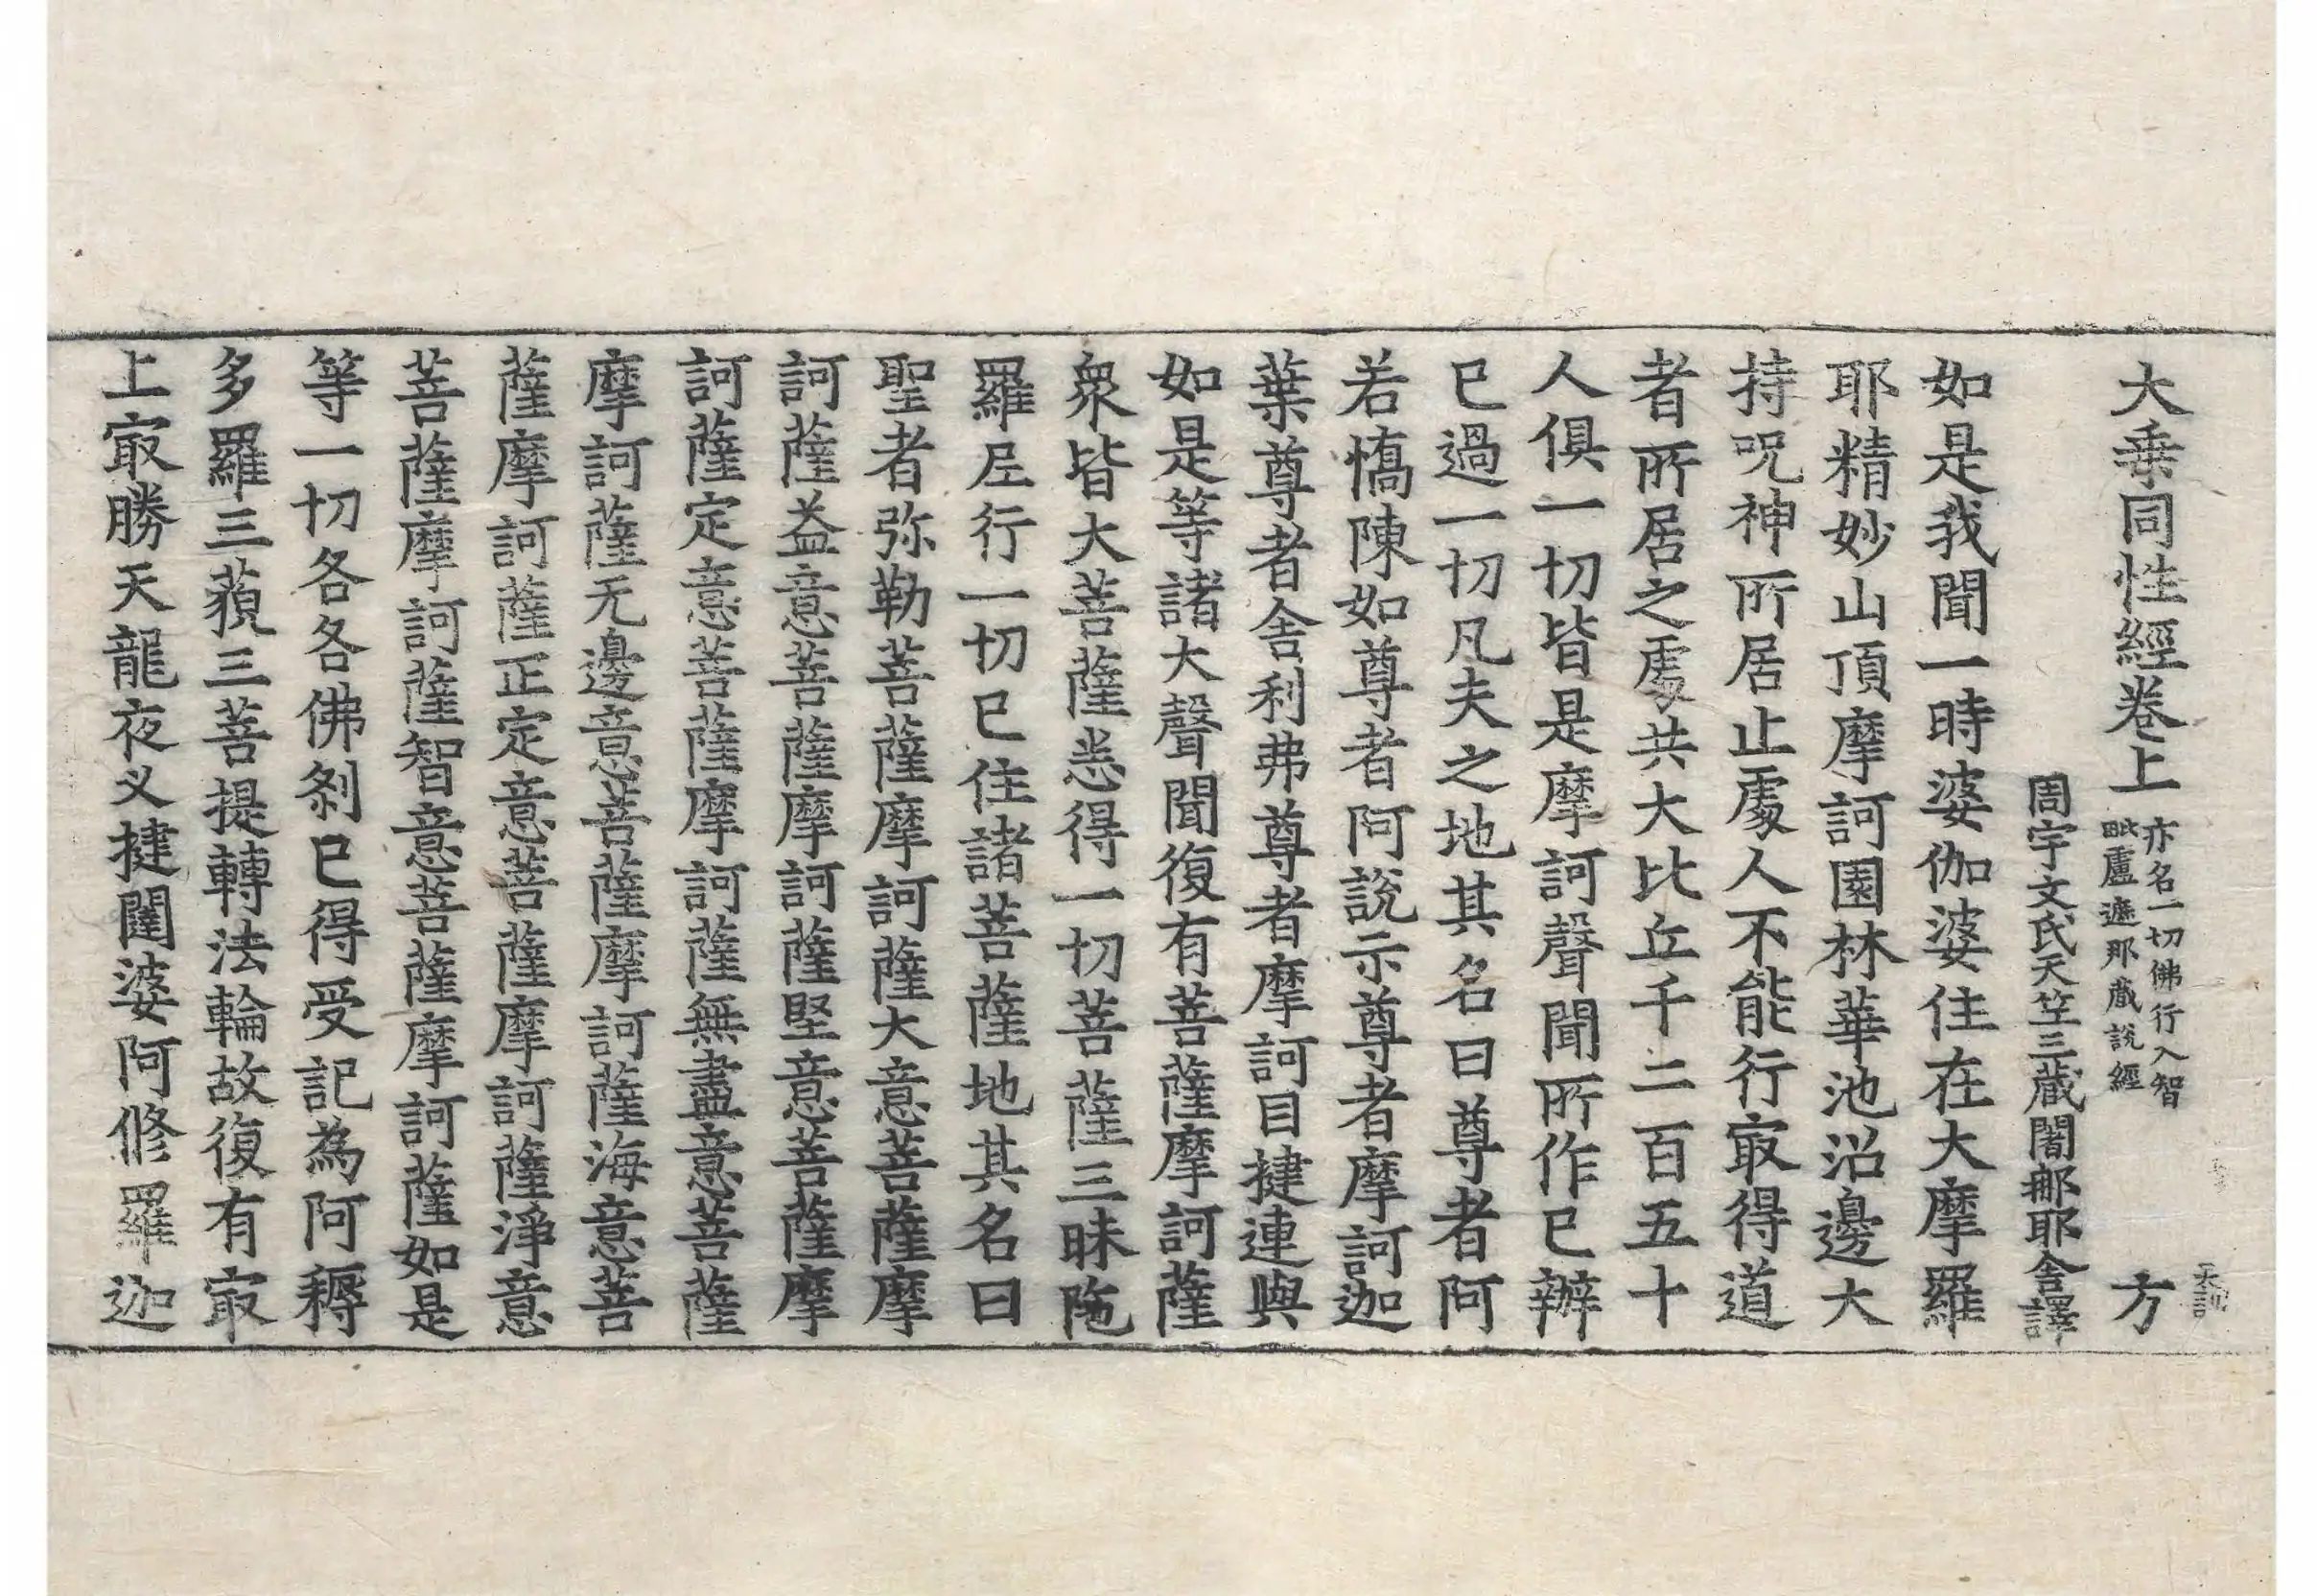 大乗同性經卷上 亦名一切佛行入智毗盧遮那藏說經 方
周宇文氏天竺三藏闍那耶舍譯
如是我聞一時婆伽婆住在大摩羅
耶精妙山頂摩訶園林華池沼邊大
持呪神所居止處人不能行㝡得道
者所居之處共大比丘千二百五十
人俱一切皆是摩訶聲聞所作已辦
已過一切凡夫之地其名曰尊者阿
若憍陳如尊者阿說示尊者摩訶迦
葉尊者舍利弗尊者摩訶目揵連與
如是等諸大聲聞復有菩薩摩訶薩
衆皆大菩薩悉得一切菩薩三昧陁
羅尼行一切已住諸菩薩地其名曰
聖者弥勒菩薩摩訶薩大意菩薩摩
訶薩益意菩薩摩訶薩堅意菩薩摩
訶薩定意菩薩摩訶薩無盡意菩薩
摩訶薩无邊意菩薩摩訶薩海意菩
薩摩訶薩正定意菩薩摩訶薩淨意
菩薩摩訶薩智意菩薩摩訶薩如是
等一切各各佛剎已得受記為阿耨
多羅三藐三菩提轉法輪故復有㝡
上㝡勝天龍夜义揵闥婆阿脩羅迦